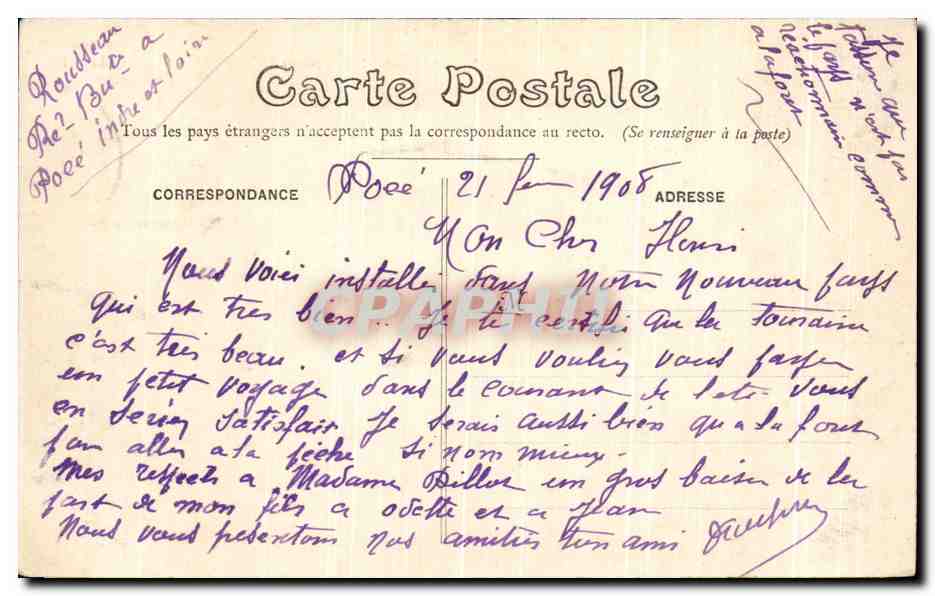 Rousseau
Re^r Bu^te a
Pocé indre et loire
Je
t'assure que
le pays n'est pas
réactionnaire comme
a la font
Carte Postale
Tous les pays étrangers n'acceptent pas la correspondance au recto. (Se renseigner à la poste)
CORRESPONDANCE
ADRESSE
Pocé 21 1908
Mon Cher Henri
CPAPHIL
Nous voici installer dans notre nouveau pays
qui est tres bien.. Je te certifi que la touraine
c'est tres beau. et si vous voulier vous payer
un petit voyage dans le courant de l'ete. vous
en serier satisfait Je serais aussi bien qu a la font
pour aller a la pèche si non mieux-
Mes respects a Madame Pillot un gros baiser de la
part de mon fils a odette et a Jean
Nous vous présentons nos amitiés ton ami